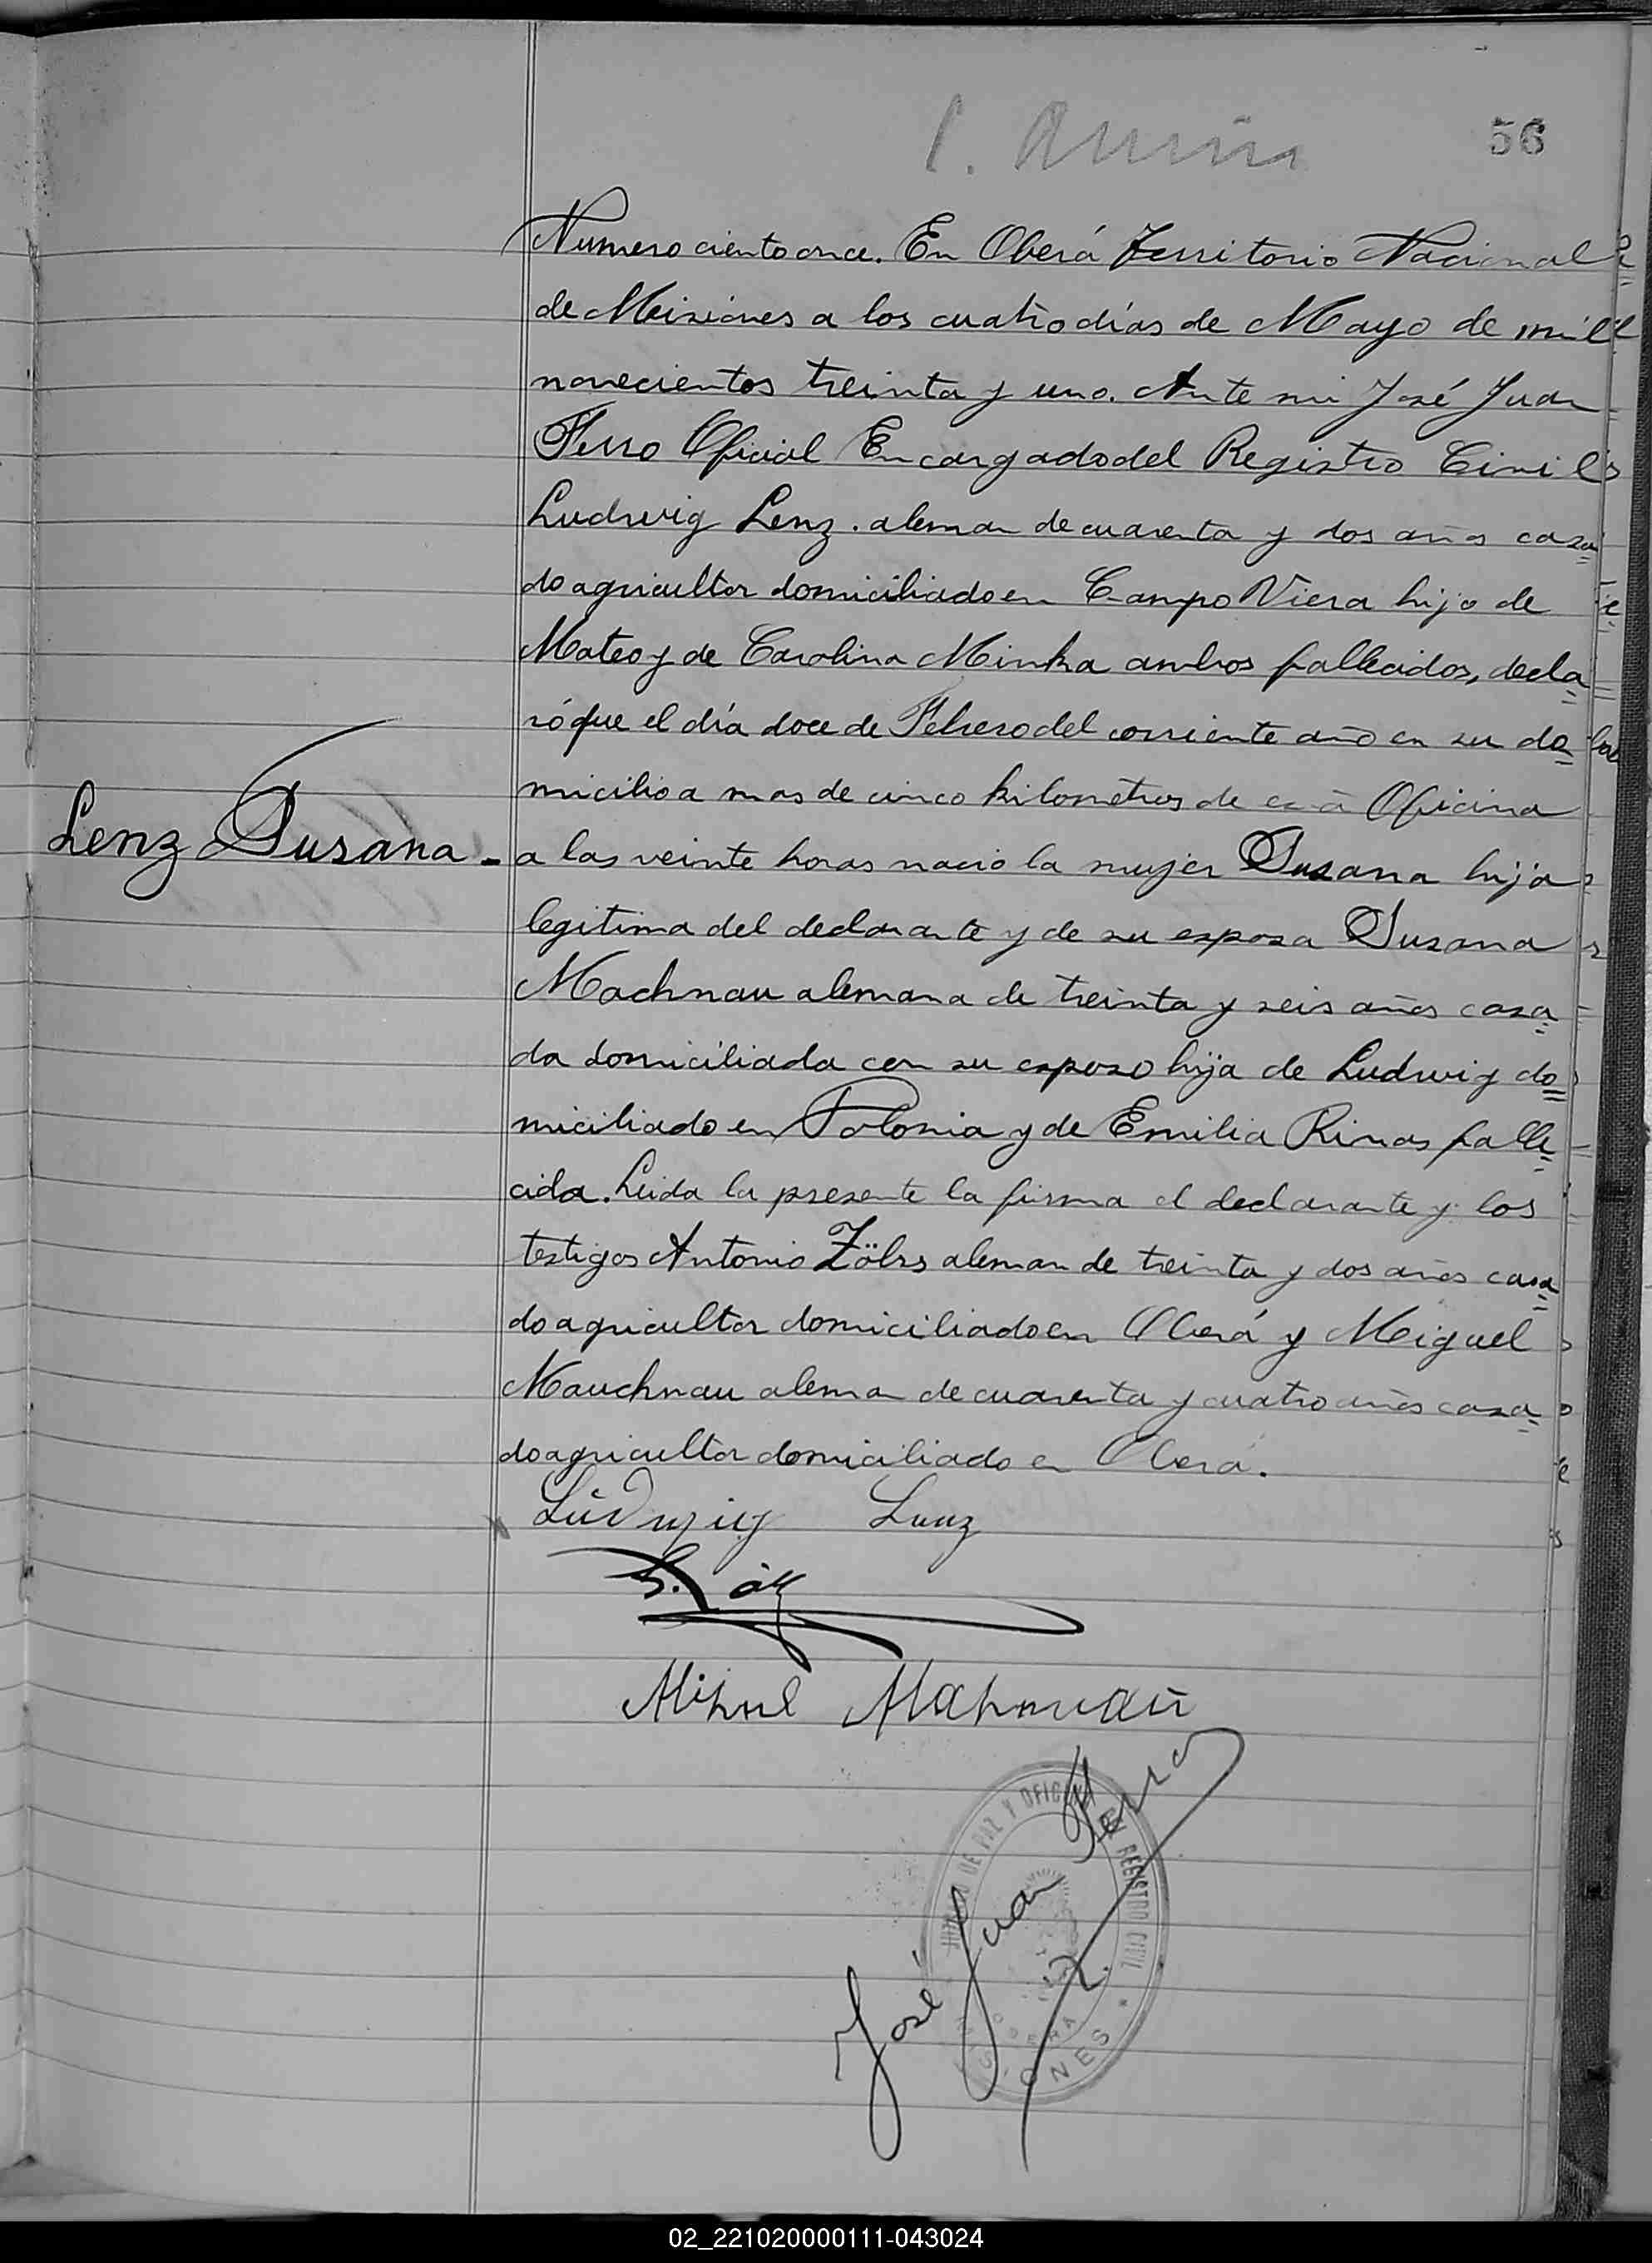 56
Numero ciento once. En Oberá Territorio Nacional
de Misiones a los cuatro días de Mayo de mil
novecientos treinta y uno. Ante mi José Juan
Ferro Oficial Encargado del Registro Civil
Ludwig Lenz. aleman de cuarenta y dos años casa
do agricultor domiciliado en Campo Viera hijo de
Mateo y de Carolina Minka ambos fallecidos, decla
ró que el día doce de Febrero del corriente año en su do
micilio a mas de cinco kilometros de esta Oficina
Lenz Susana - a las veinte horas nació la mujer Susana hija
legitima del declarante y de su esposa Susana
Machnau alemana de treinta y seis años casa
da domiciliada con su esposo hija de Ludwig do
miciliado en Polonia y de Emilia Rinas falle
cida. Leida la presente la firma el declarante y los
testigos Antonio aleman de treinta y dos años casa
do agricultor domiciliado en Oberá y Miguel
Mauchnau aleman de cuarenta y cuatro años casa
do agricultor domiciliado en Oberá.
Ludwig Lenz
José Juan Ferro
JUZGADO DE PAZ Y OFICINA DEL REGISTRO CIVIL
OBERA
MISIONES
02_221020000111-043024